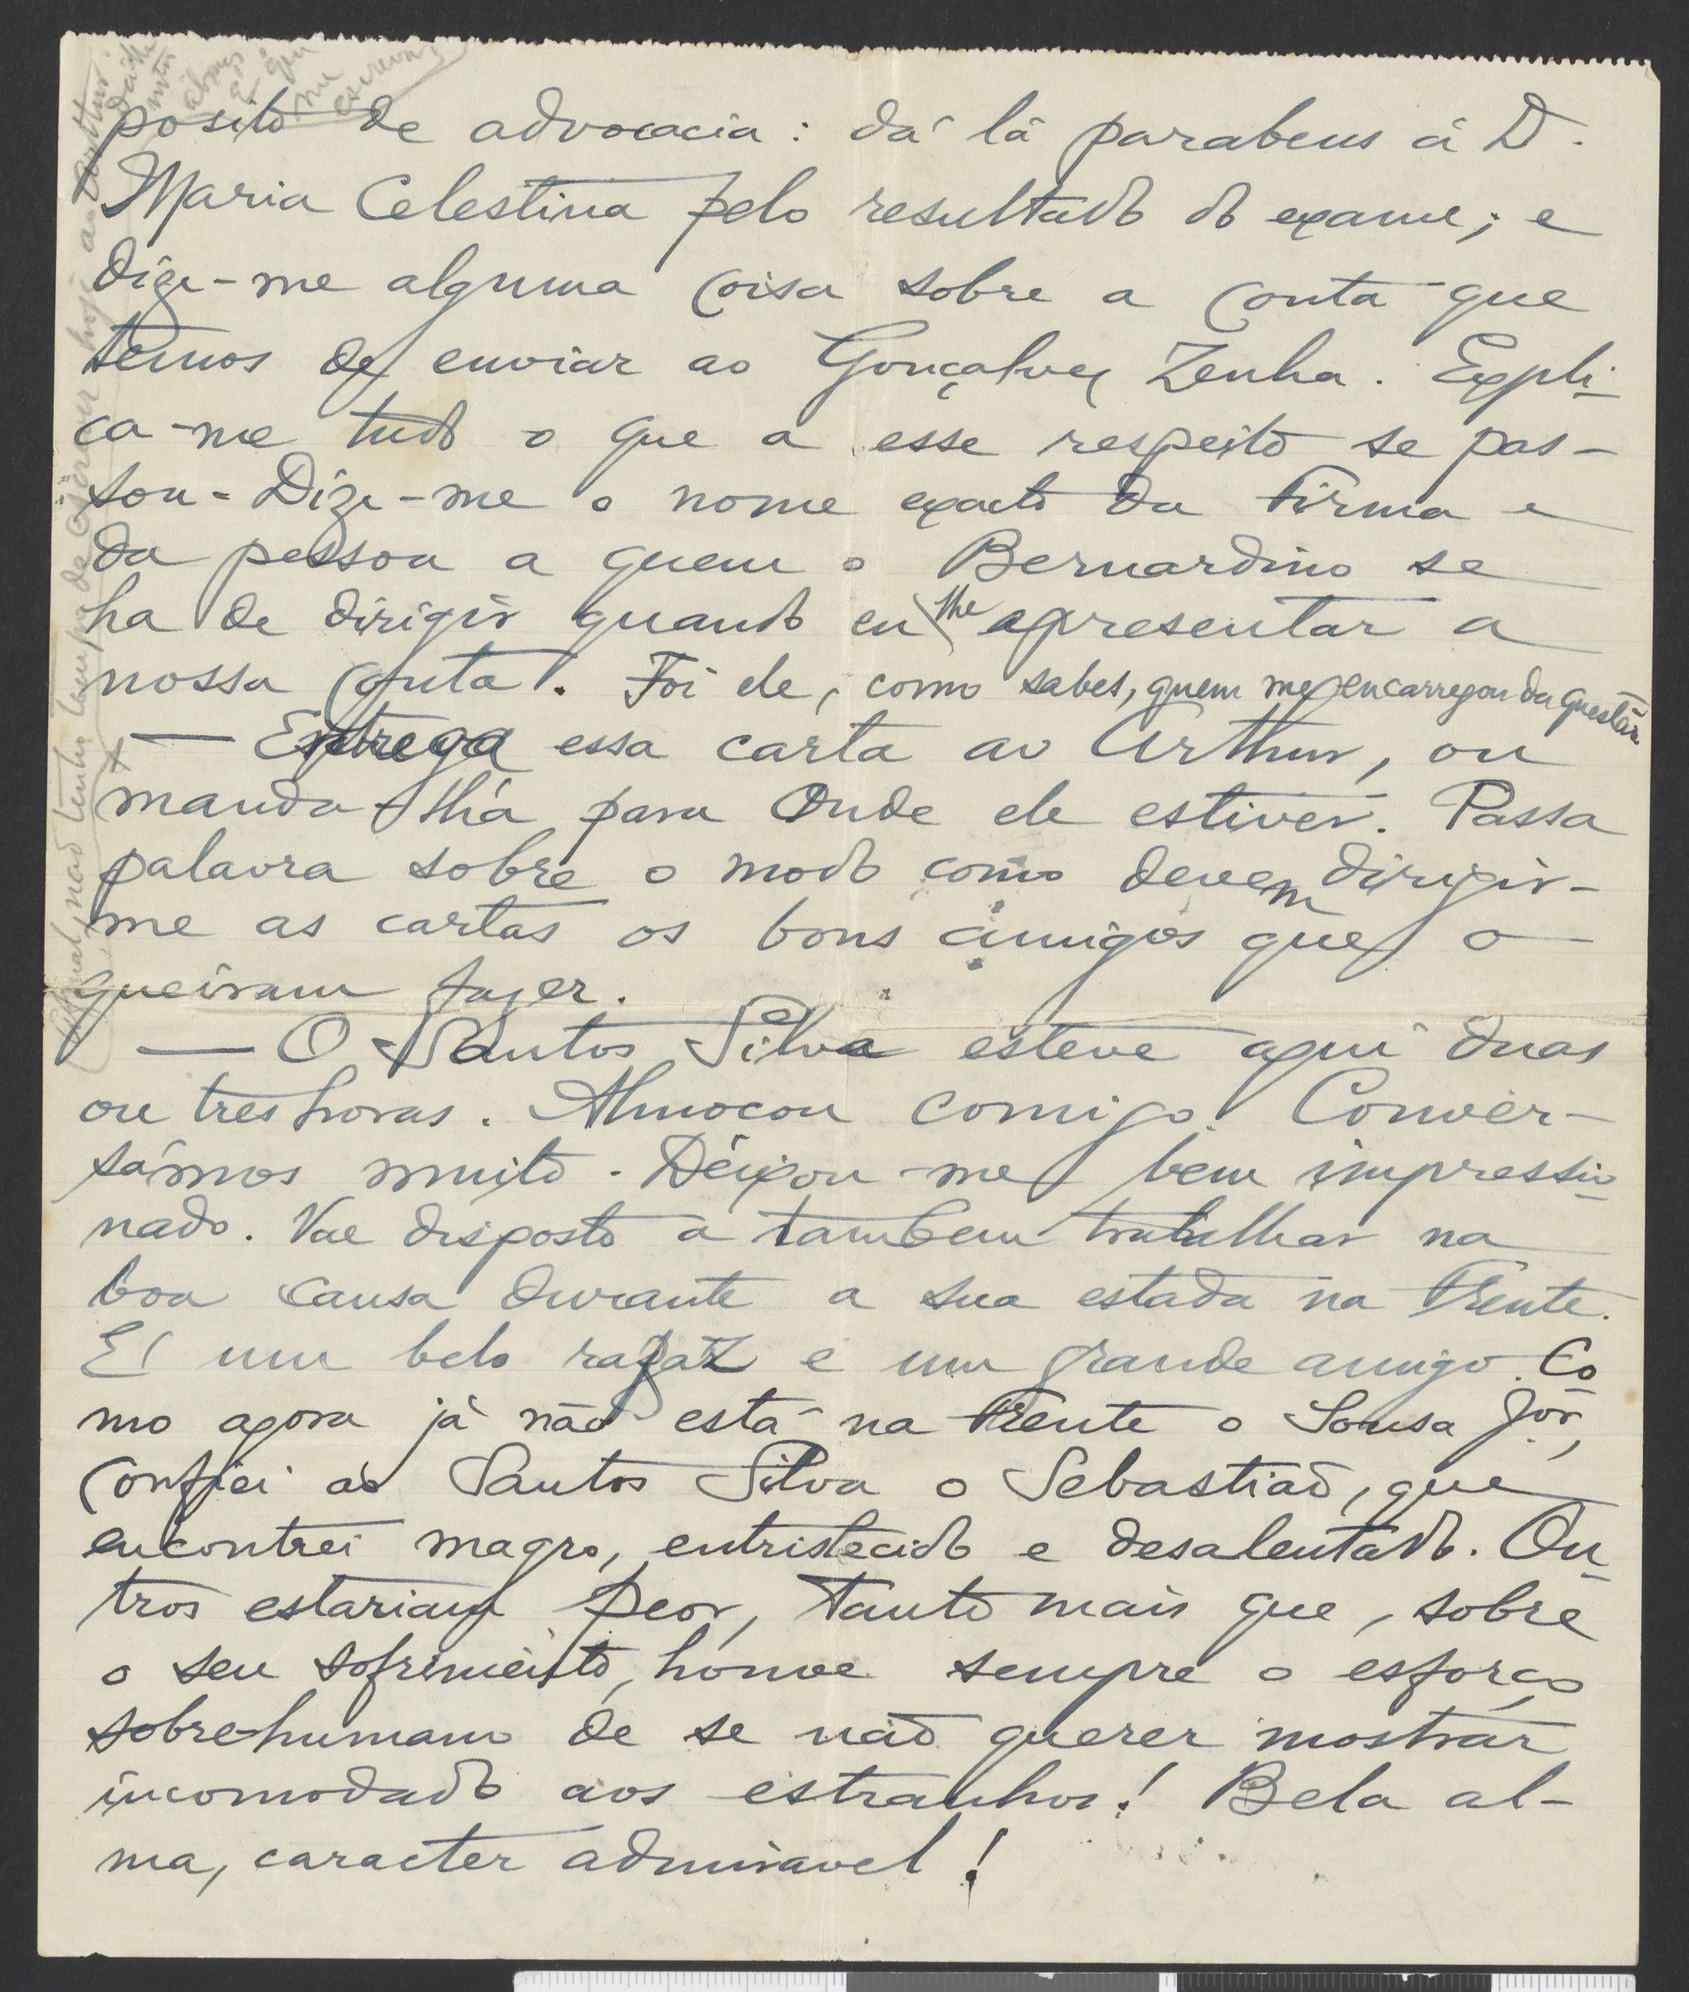 posito de advocacia: dá lá parabens á D.
Maria Celestina pelo resultado do exame; e
dize-me alguma coisa sobre a conta que
temos de enviar ao Gonçalves Zenha. Expli-
ca-me tudo o que a esse respeito se pas-
sou - Dize-me o nome exacto da firma e
da pessoa a quem o Bernardino se
ha de dirigir quando eu lhe apresentar a
nossa conta. Foi ele, como sabes, quem me encarregou da questão.
— Entrega essa carta ao Arthur, ou
manda-lhá para onde ele estiver. Passa
palavra sobre o modo como devem dirigir-
me as cartas os bons amigos que o
queiram fazer.
— O Santos Silva esteve aqui duas
ou tres horas. Almocou comigo. Conver-
sámos muito. Deixou-me bem impressio-
nado. Vae disposto a tambem trabalhar na
boa causa durante a sua estada na frente.
É um belo rapaz e um grande amigo. Co
mo agora já não está na frente o Sousa Jor,
confiei ao Santos Silva o Sebastião, que
encontrei magro, entristecido e desalentado. Ou-
tros estariam peor, tanto mais que, sobre
o seu sofrimento, houve sempre o esforço
sobrehumano de se não querer mostrar
incomodado aos estranhos! Bela al-
ma, caracter admiravel!
Afinal, não tenho tempo de escrever hoje ao Arthur.